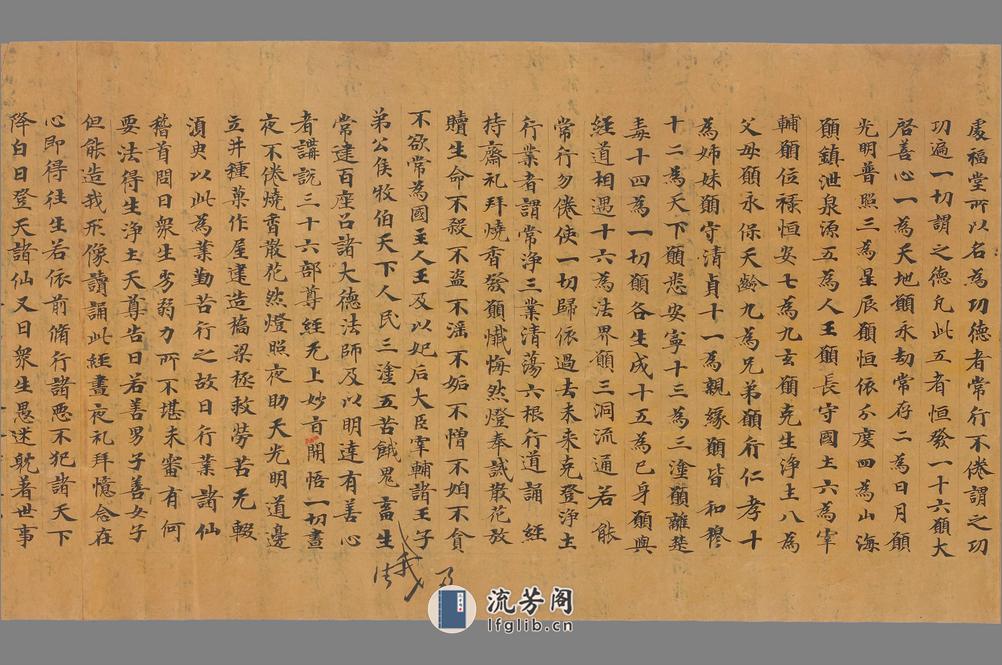 處福堂所以名為功德者常行不倦謂之功
功遍一切謂之德凡此五者恒發一十六願大
啓善心一為天地願永劫常存二為日月願
光明普照三為星辰願恒依尒度四為山海
願鎮泄泉源五為人王願長守國土六為宰
輔願位祿恒安七為九玄願克生淨土八為
父母願永保天齡九為兄弟願行仁孝十
為姉妹願守清貞十一為親緣願皆和穆
十二為天下願悉安寧十三為三塗願離楚
毒十四為一切願各生成十五為己身願與
經道相遇十六為法界願三洞流通若能
常行勿倦使一切歸依過去未来克登浄土
行業者謂常淨三業清蕩六根行道誦經
持齋礼拜燒香發願懺悔然燈奉誡散花放
贖生命不殺不盜不滛不妬不憎不媢不貪
不欲常為國主人王及以妃后大臣宰輔諸王子
弟公侯牧伯天下人民三塗五苦餓鬼畜生
常建百座吕諸大德法師及以明達有善心
者講說三十六部尊經无上妙旨開悟一切晝
夜不倦燒香散花然燈照夜助天光明道邊
立井種菓作屋建造橋梁極救勞苦无輟
湏臾以此為業勤苦行之故曰行業諸仙
稽首問曰衆生劣弱力所不堪未審有何
要法得生淨土天尊告曰若善男子善女子
但能造我形像讀誦此經晝夜礼拜憶念在
心即得往生若依前脩行諸惡不犯諸天下
降白日登天諸仙又曰衆生愚迷躭著世事
流芳阁
lfglib.cn